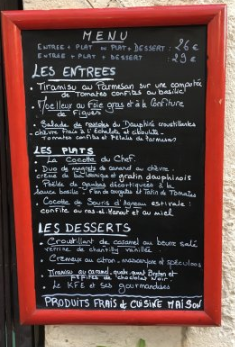 MENU
ENTREE + PLAT ou PLAT + DESSERT : 26 €
ENTREE + PLAT + DESSERT 29 €
LES ENTREES
Tiramisu au Parmesan sur une compotée
de Tomates confites au basilic
Moelleux au Foie gras et à la Confiture
de Figues
Salade de ravioles du Dauphiné croustillantes
chèvre frais à l'échalote et ciboulette
Tomates confites et Pétales de
LES PLATS
La Cocotte du Chef.
Duo de magrets de canard au chèvre
crème de balsamique et gratin dauphinois
Poêlée de gambas décortiquées à la
sauce basilic
Cocotte de Souris d'agneau estivale :
confite au ras-el-hanout et au miel
LES DESSERTS
Croustillant de caramel au beurre salé
verrine de chantilly vanille
Crémeux au citron, mascarpone et spéculoos
Tiramisu au caramel, Breton et
pépites de chocolat Noir
Le KFE et ses gourmandises
PRODUITS FRAIS & CUISINE MAISON